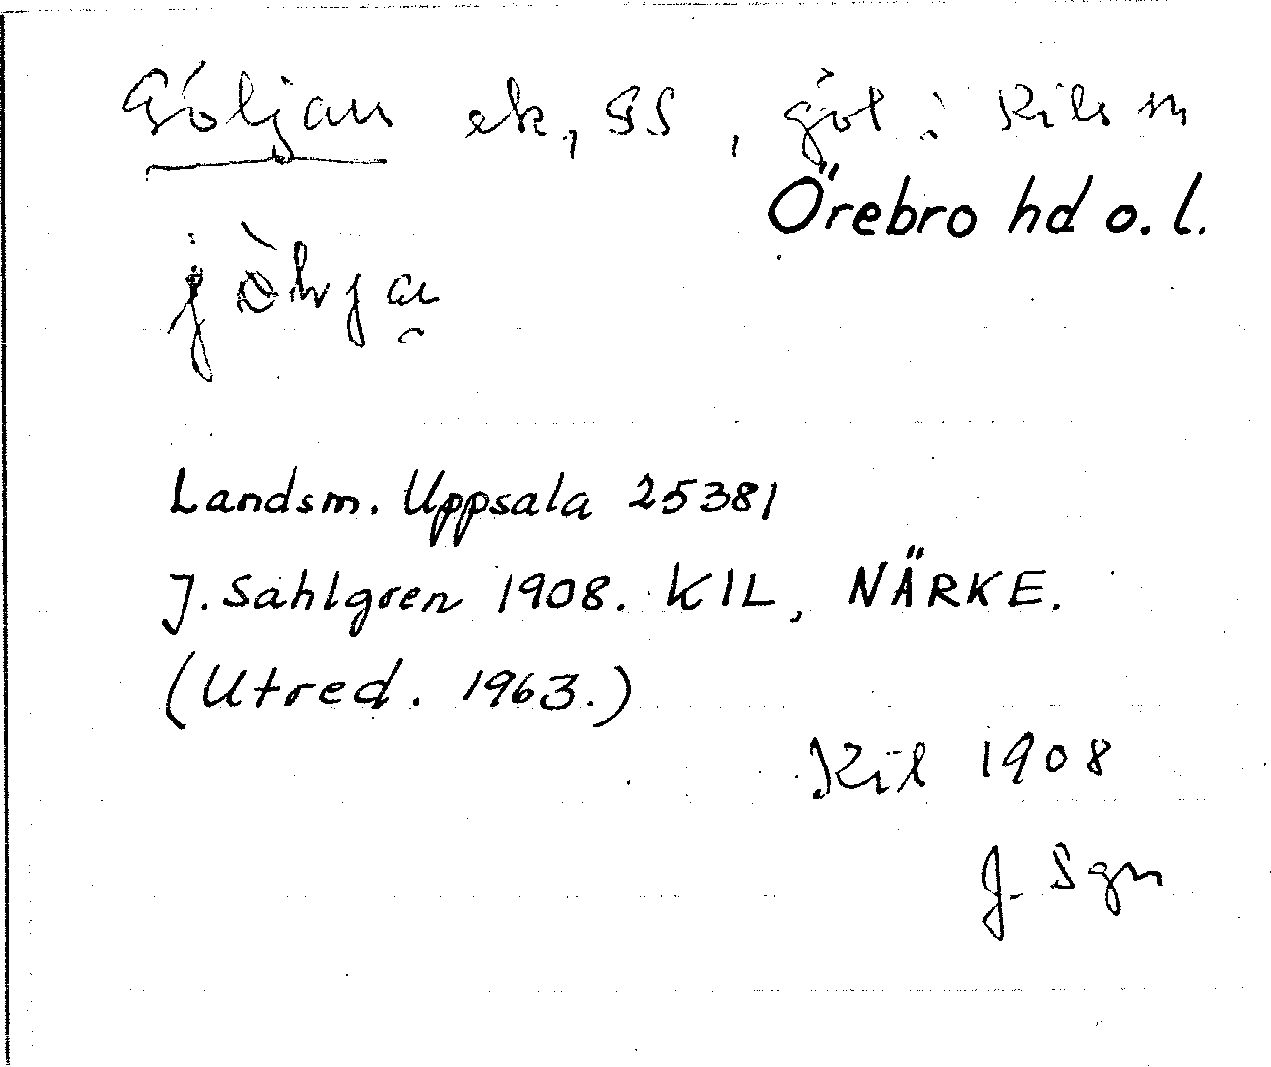 Göljan ek, SS, göl i Kils sn
Örebro hd o. l.
Landsm. Uppsala 25381
J. Sahlgren 1908. KIL, NÄRKE.
(Utred. 1963.)
Kil 1908
J. Sgn